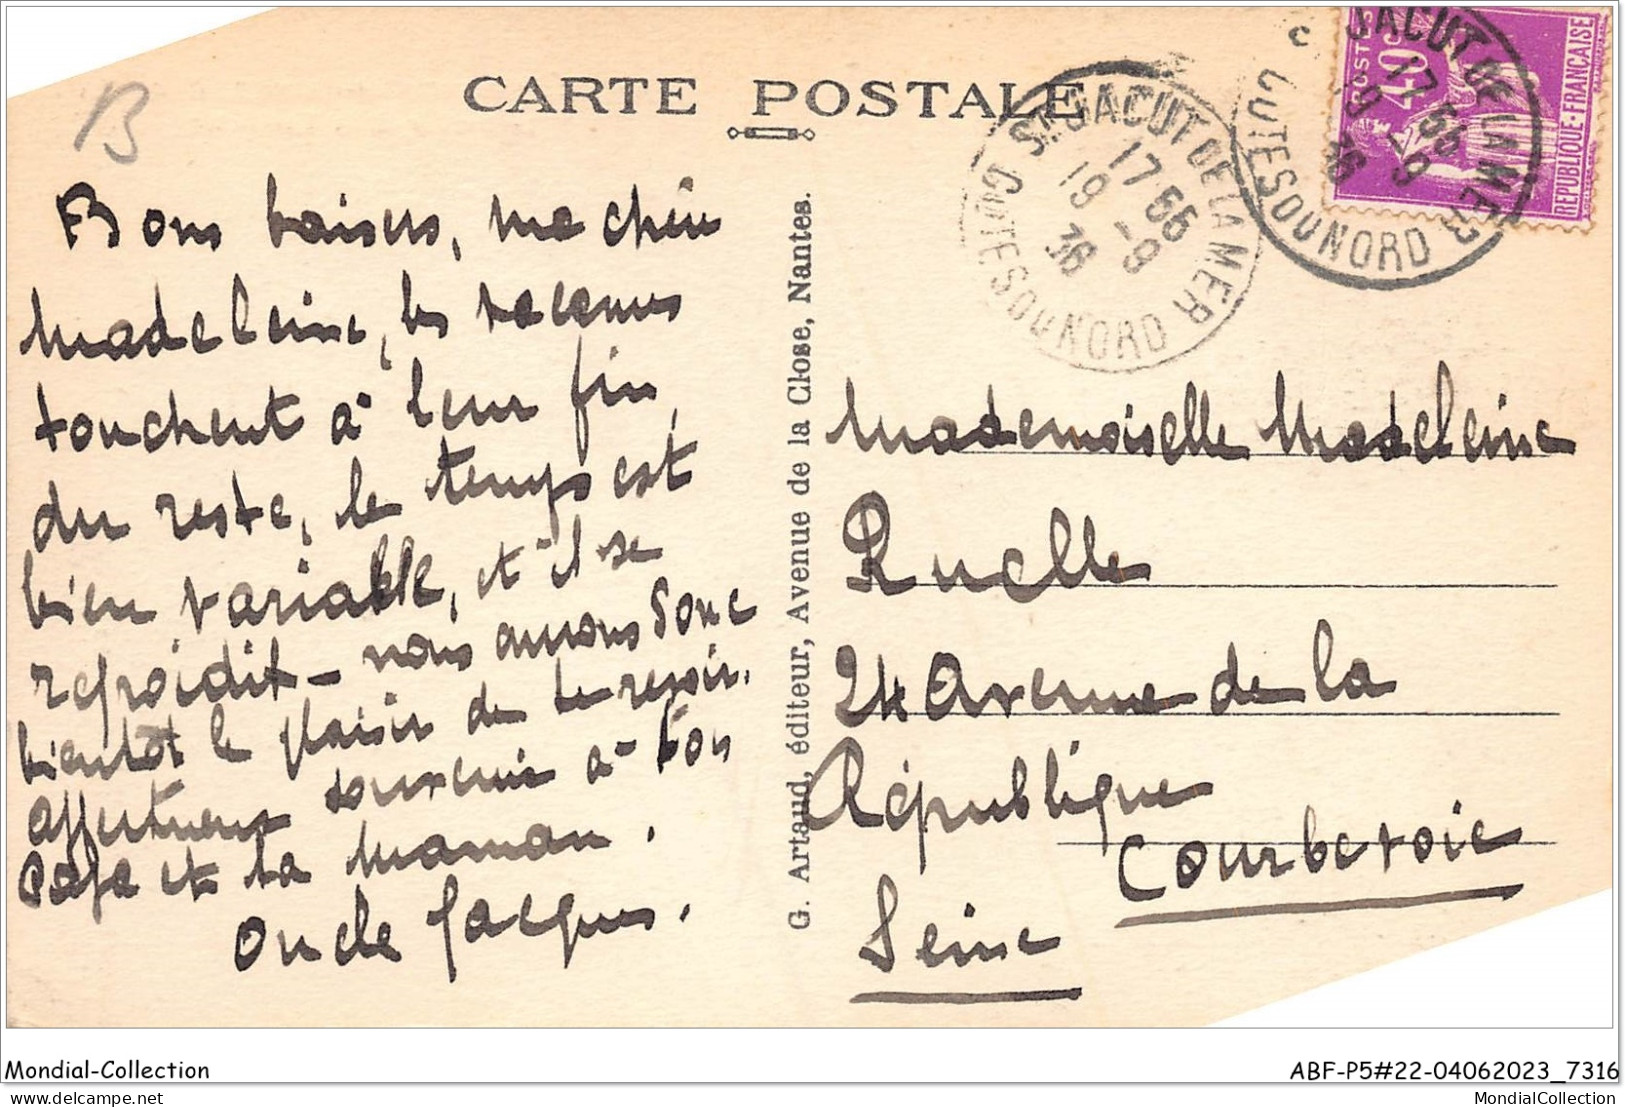 B
CARTE POSTALE
Bons baisers, ma chère
Madeleine, les vacances
touchent à leur fin,
du reste, le temps est
bien variable, et il se
refroidit - nous aurons donc
bientôt le plaisir de te revoir.
affectueux souvenir à ton
Papa et ta Maman.
Oncle Jacques.
G. Artaud, éditeur, Avenue de la Close, Nantes.
ST JACUT DE LA MER
17 55
19 -9
36
COTES DU NORD
POSTES
40c
REPUBLIQUE-FRANCAISE
JACUT DE LA MER
17 55
19 -9
36
COTES DU NORD
Mademoiselle Madeleine
Ruelle
24 Avenue de la
République
Courbevoie
Seine
Mondial-Collection
ABF-P5#22-04062023_7316
delcampe.net
MondialCollection